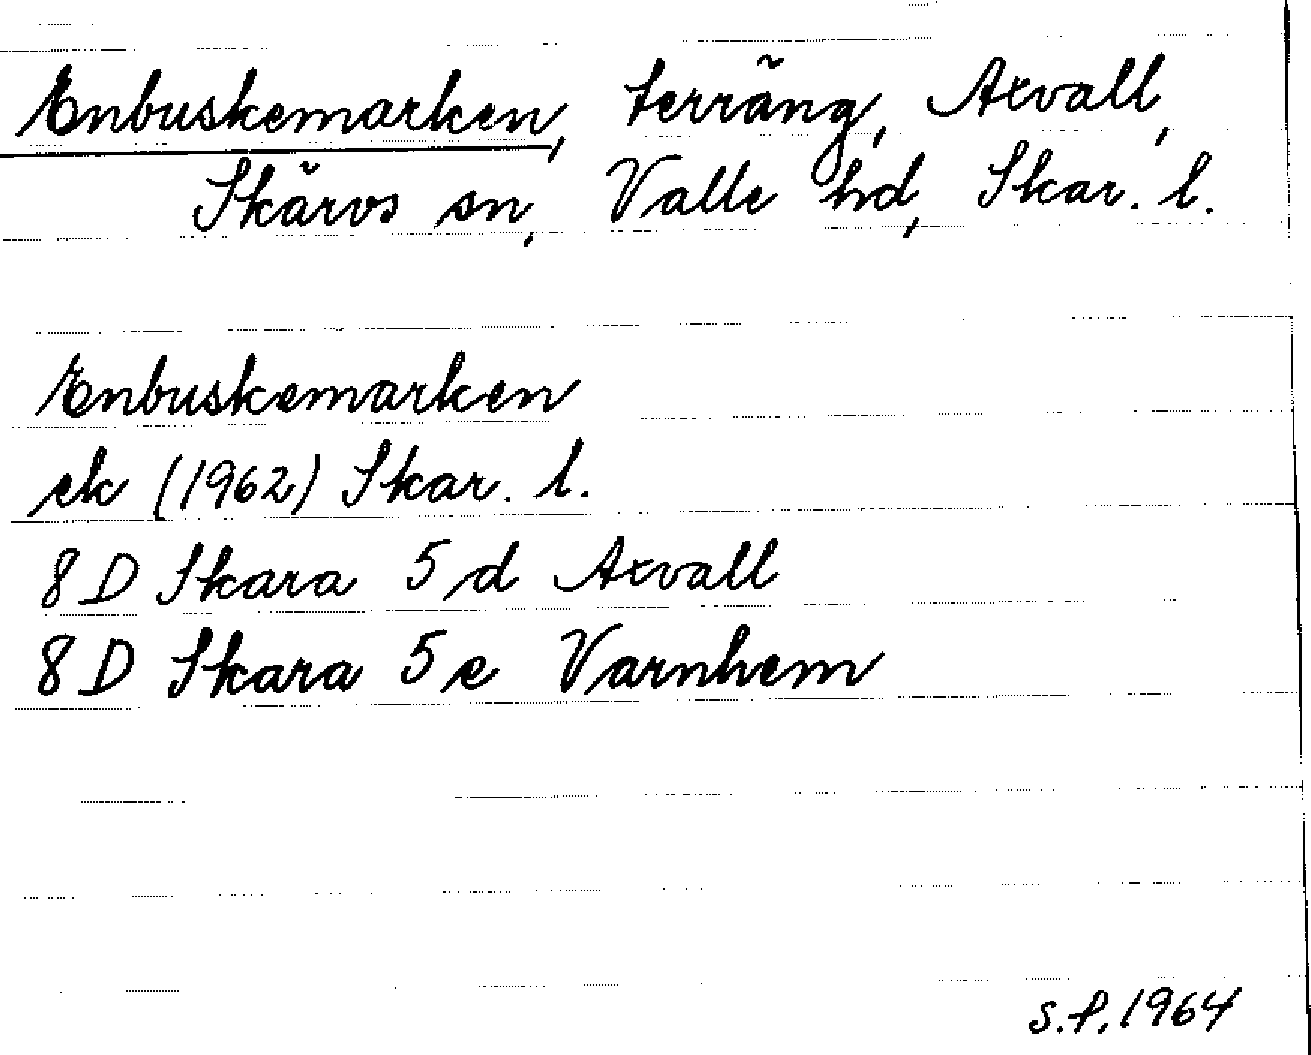 Enbuskemarken, terräng, Axvall,
Skärvs sn, Valle hd, Skar. l.
Enbuskemarken
ek (1962) Skar. l.
8 D Skara 5 d Axvall
8 D Skara 5 e Varnhem
S.P. 1964